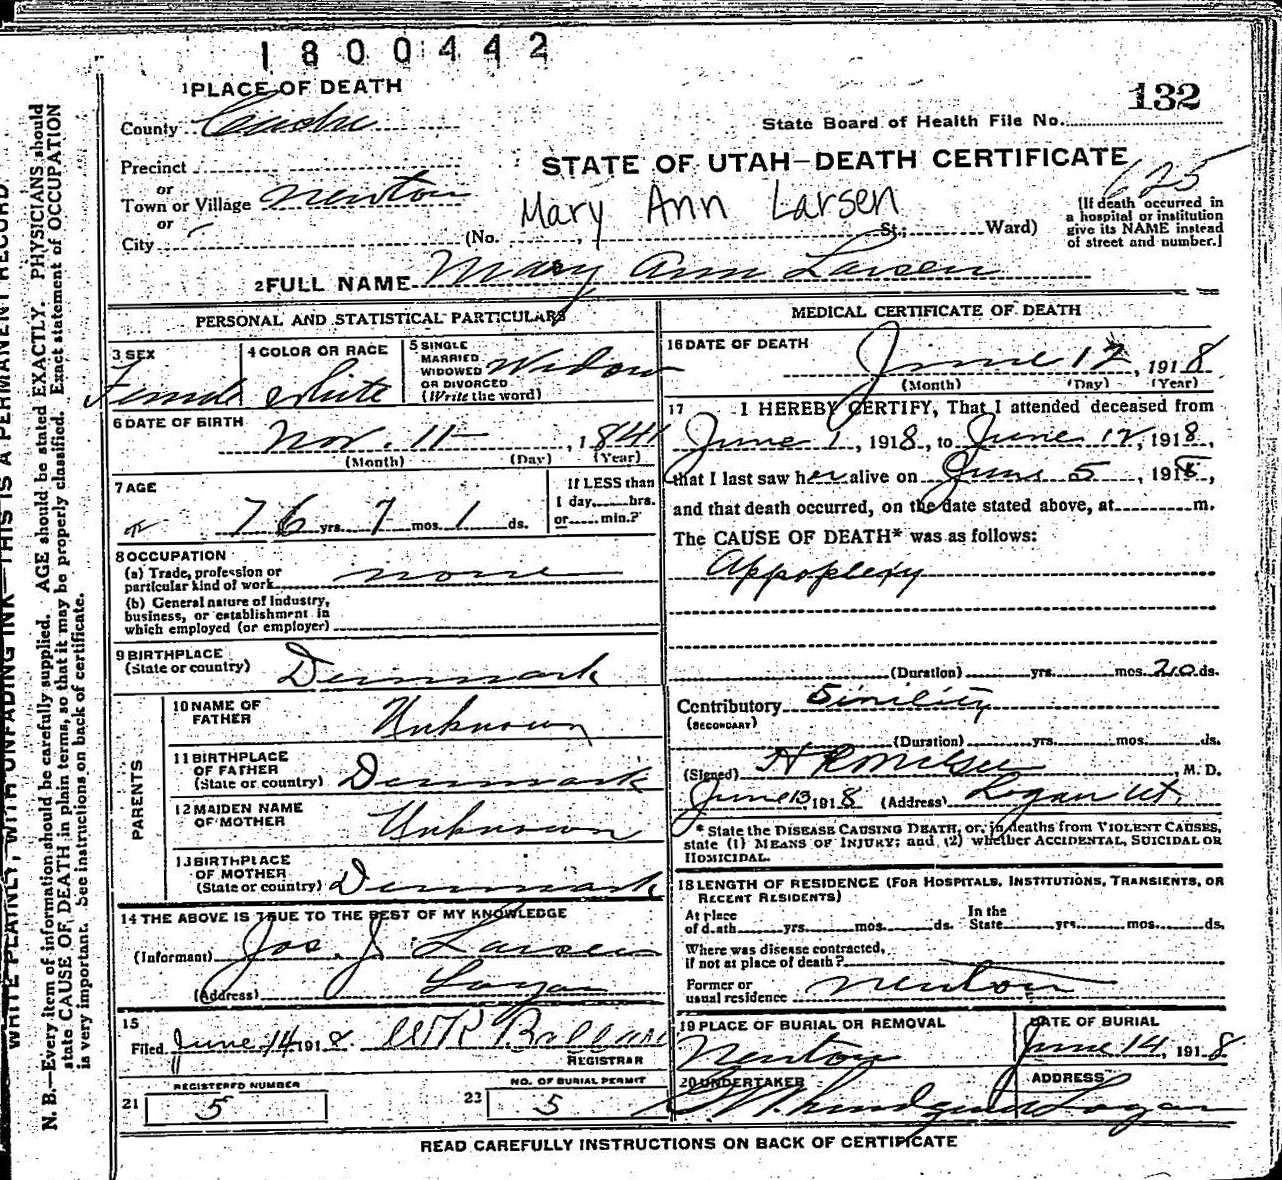 1800442
132
1 PLACE OF DEATH
County Cache
State Board of Health File No.
Precinct
STATE OF UTAH—DEATH CERTIFICATE
625
or
Town or Village Newton
Mary Ann Larsen
or
City
(No. St.; Ward)
[If death occurred in
a hospital or institution
give its NAME instead
of street and number.]
2 FULL NAME Mary Ann Larsen
PERSONAL AND STATISTICAL PARTICULARS
3 SEX
Female
4 COLOR OR RACE
White
5 SINGLE
MARRIED
WIDOWED
OR DIVORCED
(Write the word)
Widow
6 DATE OF BIRTH
Nov. 11 , 1841
(Month) (Day) (Year)
7 AGE
76 yrs. 7 mos. 1 ds.
If LESS than
1 day, hrs.
or min.?
8 OCCUPATION
(a) Trade, profession or
particular kind of work none
(b) General nature of Industry,
business, or establishment in
which employed (or employer)
9 BIRTHPLACE
(State or country) Denmark
PARENTS
10 NAME OF
FATHER Unknown
11 BIRTHPLACE
OF FATHER
(State or country) Denmark
12 MAIDEN NAME
OF MOTHER Unknown
13 BIRTHPLACE
OF MOTHER
(State or country) Denmark
14 THE ABOVE IS TRUE TO THE BEST OF MY KNOWLEDGE
(Informant) Jos. J. Larsen
(Address) Logan
15
Filed June 14 1918
REGISTRAR
REGISTERED NUMBER
21 5
NO. OF BURIAL PERMIT
23 5
MEDICAL CERTIFICATE OF DEATH
16 DATE OF DEATH
June 12, 1918
(Month) (Day) (Year)
17 I HEREBY CERTIFY, That I attended deceased from
June 1, 1918, to June 12, 1918,
that I last saw her alive on June 5, 1918,
and that death occurred, on the date stated above, at m.
The CAUSE OF DEATH* was as follows:
Appoplexy
(Duration) yrs. mos. 20 ds.
Contributory Sinility
(SECONDARY)
(Duration) yrs. mos. ds.
(Signed) M. D.
June 13 1918 (Address) Logan Ut.
* State the DISEASE CAUSING DEATH, or, in deaths from VIOLENT CAUSES,
state (1) MEANS OF INJURY; and (2) whether ACCIDENTAL, SUICIDAL OR
HOMICIDAL.
18 LENGTH OF RESIDENCE (FOR HOSPITALS, INSTITUTIONS, TRANSIENTS, OR
RECENT RESIDENTS)
At place
of death yrs. mos. ds.
In the
State yrs. mos. ds.
Where was disease contracted,
if not at place of death?
Former or
usual residence Newton
19 PLACE OF BURIAL OR REMOVAL
Newton
DATE OF BURIAL
June 14, 1918
20 UNDERTAKER
ADDRESS
Logan
READ CAREFULLY INSTRUCTIONS ON BACK OF CERTIFICATE
WRITE PLAINLY, WITH UNFADING INK—THIS IS A PERMANENT RECORD.
N. B.—Every item of information should be carefully supplied. AGE should be stated EXACTLY. PHYSICIANS should
state CAUSE OF DEATH in plain terms, so that it may be properly classified. Exact statement of OCCUPATION
is very important. See instructions on back of certificate.